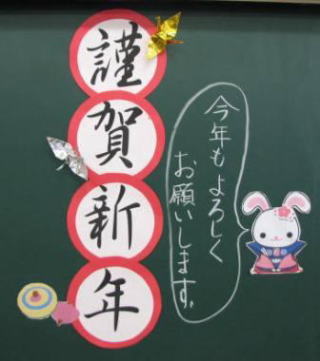 謹賀新年
今年もよろしく
お願いします。